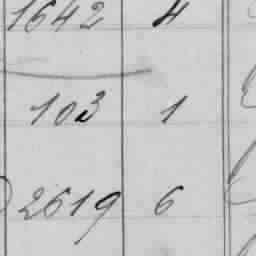 1642 4
103 1
2619 6